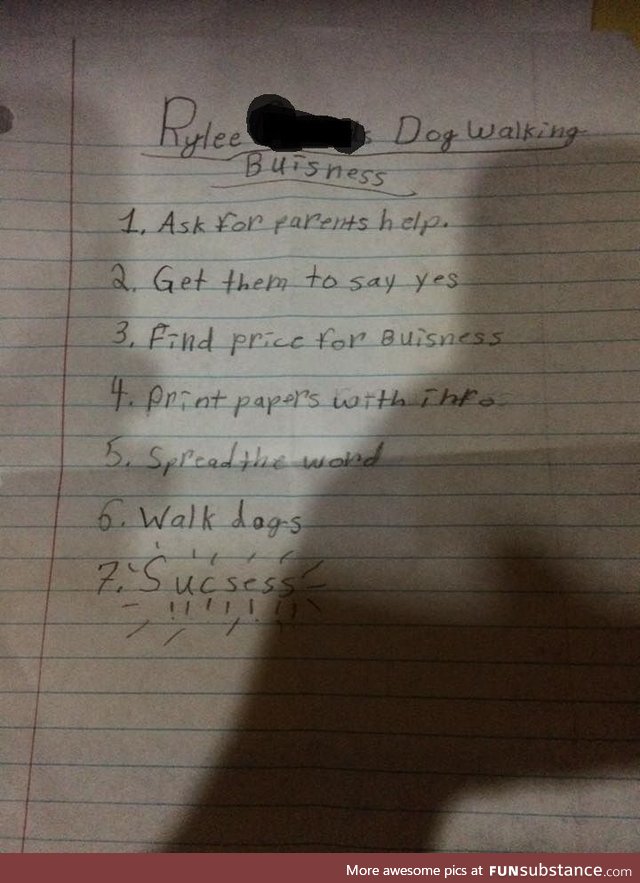 Rylee s Dog Walking
Buisness
1. Ask for parents help.
2. Get them to say yes
3. Find price for Buisness
4. print papers with info.
5. Spread the word
6. Walk dogs
7. Sucsess
More awesome pics at FUNsubstance.com